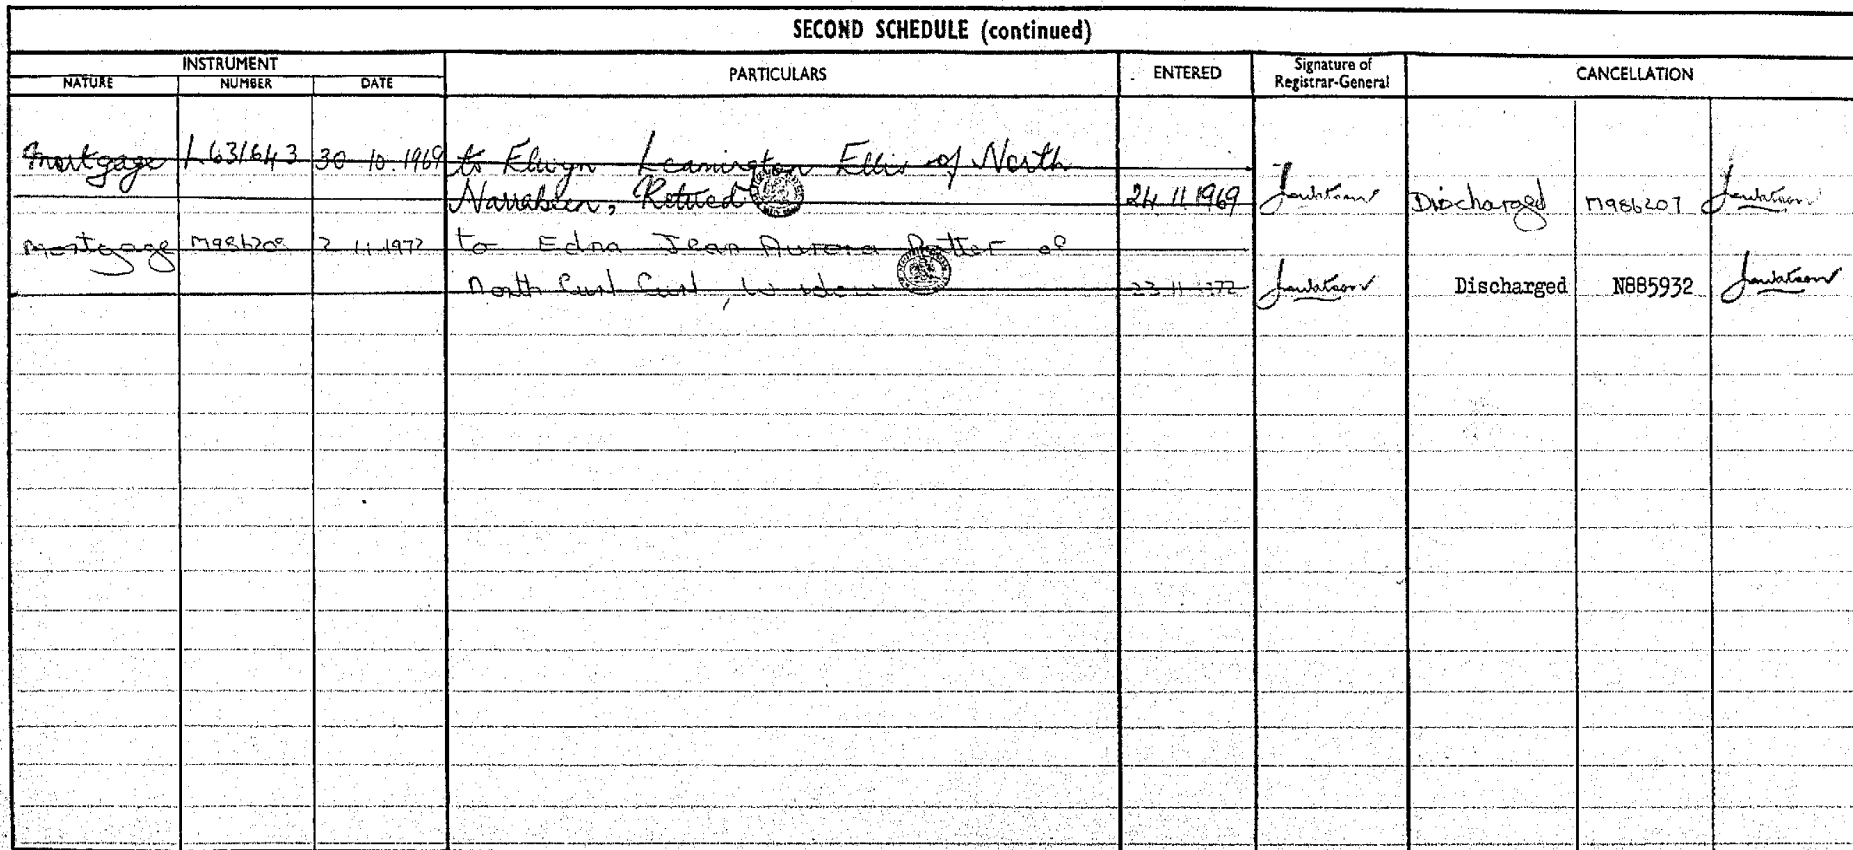 SECOND SCHEDULE (continued)
INSTRUMENT
NATURE NUMBER DATE PARTICULARS ENTERED Signature of Registrar-General CANCELLATION
Mortgage L631643 30-10-1969 to Elwyn Leamington Ellis of North
Narrabeen, Retired 24.11.1969 Discharged M986207
Mortgage M986208 2-11-1972 to Edna Jean Aurora Potter of
North Curl Curl, Widow 23-11-1972 Discharged N885932